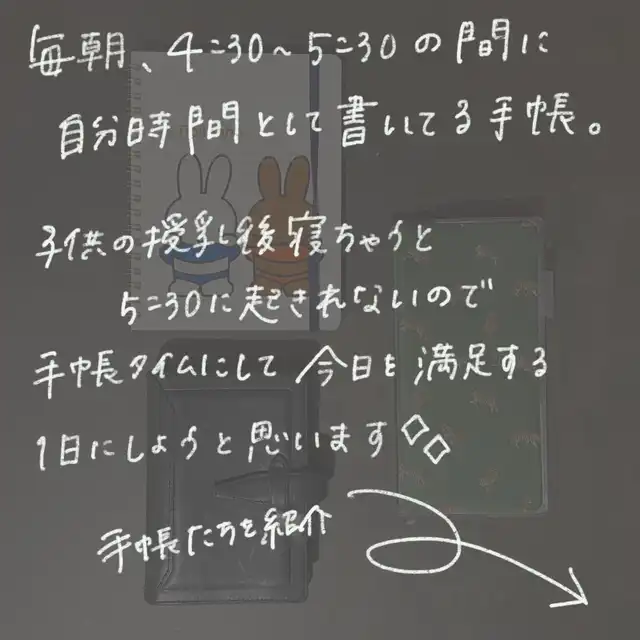 毎朝、4:30~5:30の間に
自分時間として書いてる手帳。
子供の授乳後寝ちゃうと
5:30に起きれないので
手帳タイムにして今日も満足する
1日にしようと思います
手帳たちを紹介